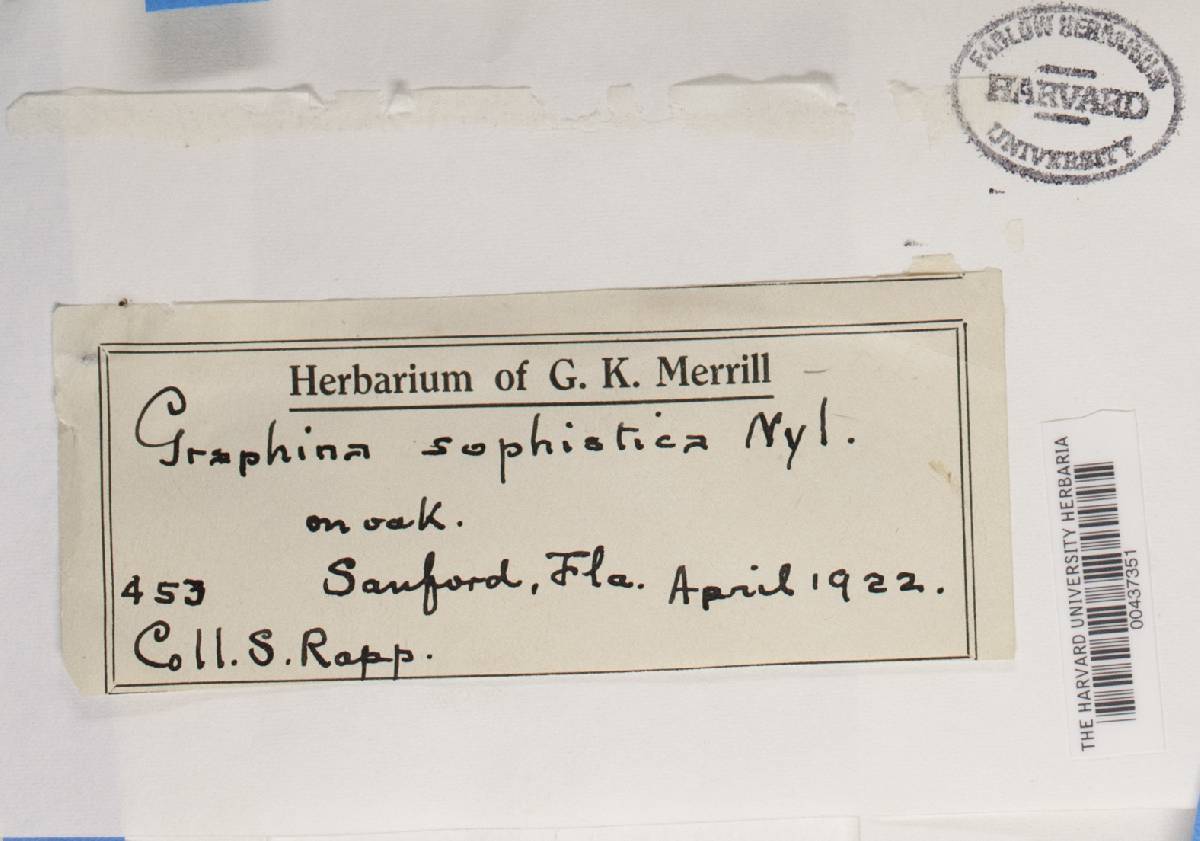 FARLOW HERBARIUM
HARVARD
UNIVERSITY
Herbarium of G. K. Merrill
Graphina sophistica Nyl.
on oak.
453 Sanford, Fla. April 1922.
Coll. S. Rapp.
THE HARVARD UNIVERSITY HERBARIA
00437351